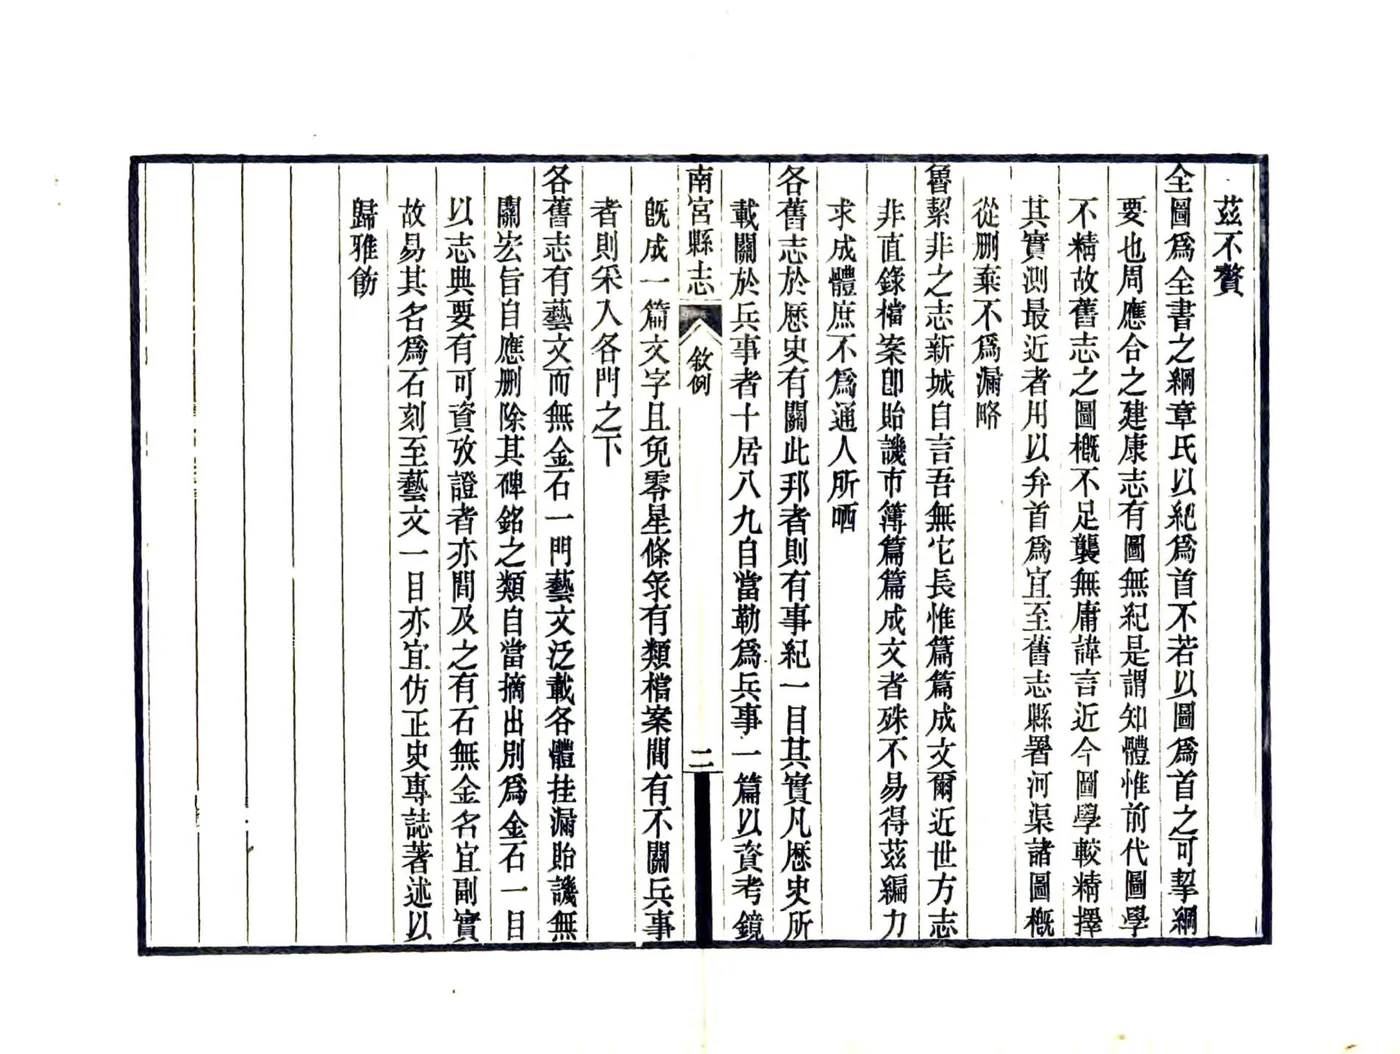 茲不贅
全圖爲全書之綱章氏以紀爲首不若以圖爲首之可挈綱
要也周應合之建康志有圖無紀是謂知體惟前代圖學
不精故舊志之圖槪不足襲無庸諱言近今圖學較精擇
其實測最近者用以弁首爲宜至舊志縣署河渠諸圖槪
從删棄不爲漏略
魯絜非之志新城自言吾無它長惟篇篇成文爾近世方志
非直錄檔案卽貽譏市簿篇篇成文者殊不易得茲編力
求成體庶不爲通人所哂
各舊志於歷史有關此邦者則有事紀一目其實凡歷史所
載關於兵事者十居八九自當勒爲兵事一篇以資考鏡
南宮縣志
敘例
二
旣成一篇文字且免零星條彔有類檔案間有不關兵事
者則采入各門之下
各舊志有藝文而無金石一門藝文泛載各體挂漏貽譏無
關宏旨自應删除其碑銘之類自當摘出別爲金石一目
以志典要有可資攷證者亦間及之有石無金名宜副實
故易其名爲石刻至藝文一目亦宜仿正史專誌著述以
歸雅飭